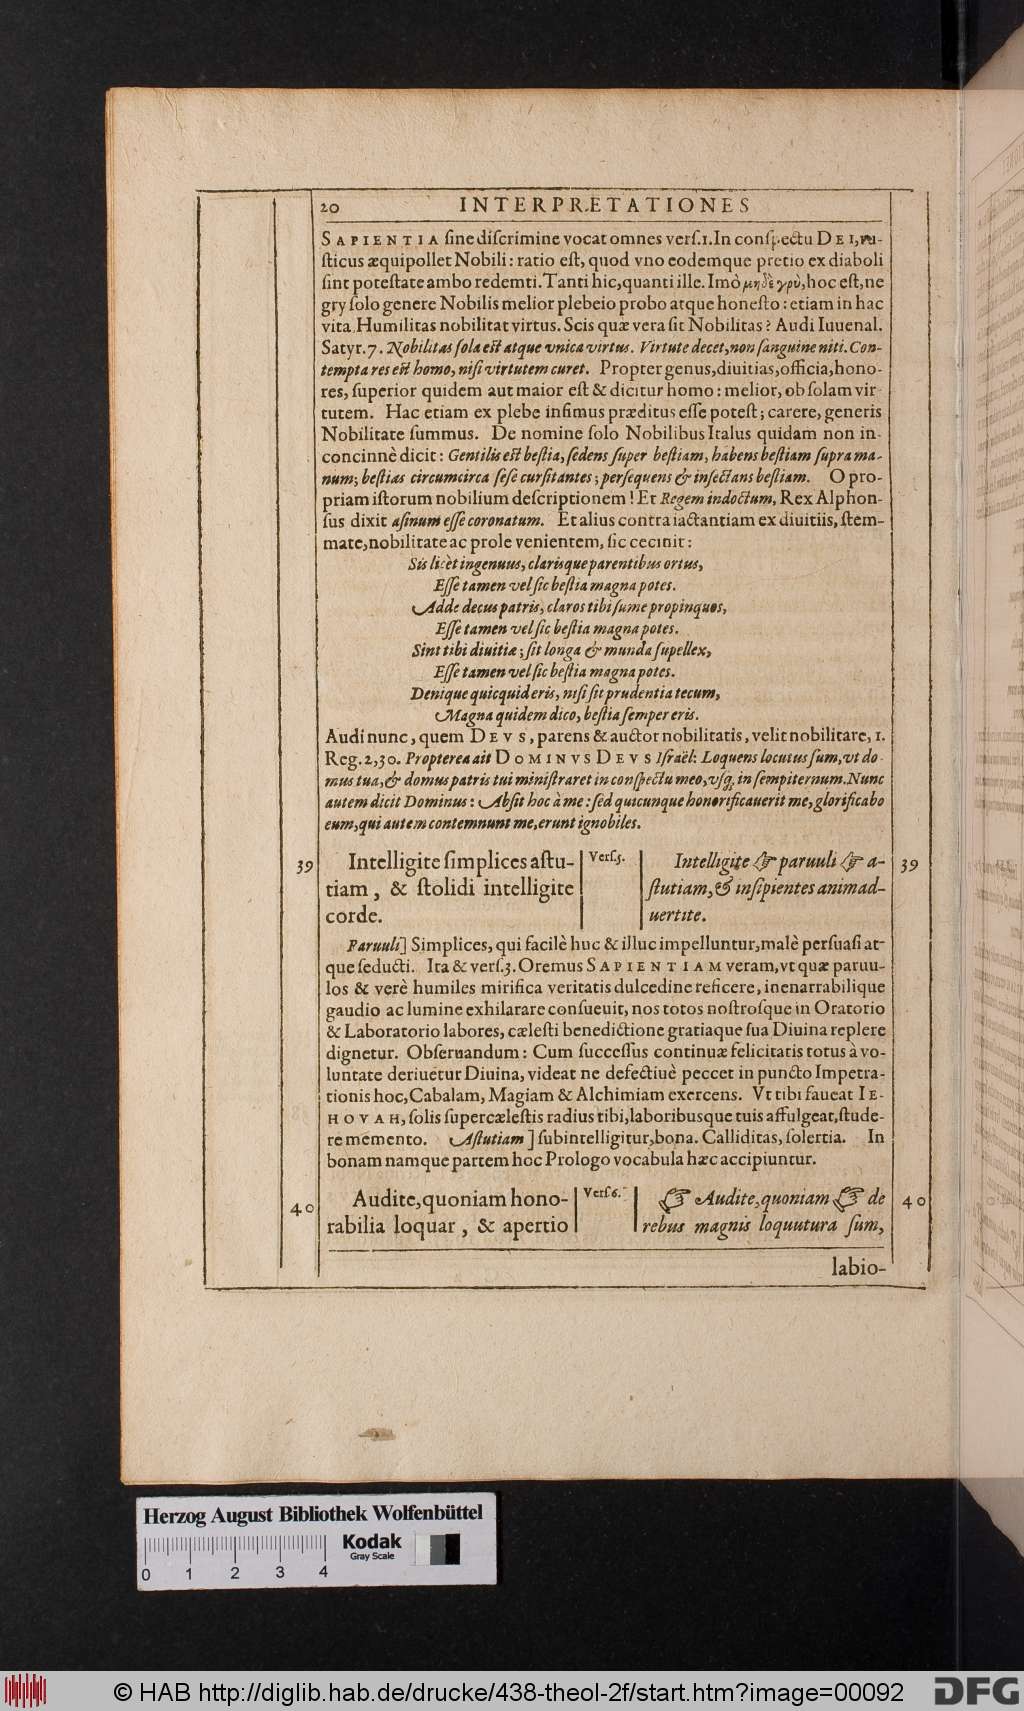 20 INTERPRÆTATIONES
SAPIENTIA ſine diſcrimine vocat omnes verſ.1. In conſpectu DEI, ru-
ſticus æquipollet Nobili: ratio eſt, quod vno eodemque pretio ex diaboli
ſint poteſtate ambo redemti. Tanti hic, quanti ille. Imò μηδὲ γρὺ, hoc eſt, ne
gry ſolo genere Nobilis melior plebeio probo atque honeſto: etiam in hac
vita. Humilitas nobilitat virtus. Scis quæ vera ſit Nobilitas? Audi Iuuenal.
Satyr. 7. Nobilitas ſola eſt atque vnica virtus. Virtute decet, non ſanguine niti. Con-
tempta res eſt homo, niſi virtutem curet. Propter genus, diuitias, officia, hono-
res, ſuperior quidem aut maior eſt & dicitur homo: melior, ob ſolam vir-
tutem. Hac etiam ex plebe infimus præditus eſſe poteſt; carere, generis
Nobilitate ſummus. De nomine ſolo Nobilibus Italus quidam non in-
concinnè dicit: Gentilis eſt beſtia, ſedens ſuper beſtiam, habens beſtiam ſupra ma-
num; beſtias circumcirca ſeſe curſitantes; perſequens & inſectans beſtiam. O pro-
priam iſtorum nobilium deſcriptionem! Et Regem indoctum, Rex Alphon-
ſus dixit aſinum eſſe coronatum. Et alius contra iactantiam ex diuitiis, ſtem-
mate, nobilitate ac prole venientem, ſic cecinit:
Sis licèt ingenuus, clarisque parentibus ortus,
Eſſe tamen vel ſic beſtia magna potes.
Adde decus patris, claros tibi ſume propinquos,
Eſſe tamen vel ſic beſtia magna potes.
Sint tibi diuitiæ; ſit longa & munda ſupellex,
Eſſe tamen vel ſic beſtia magna potes.
Denique quicquid eris, niſi ſit prudentia tecum,
Magna quidem dico, beſtia ſemper eris.
Audi nunc, quem DEVS, parens & auctor nobilitatis, velit nobilitare, 1.
Reg. 2, 30. Propterea ait DOMINVS DEVS Iſraël: Loquens locutus ſum, vt do-
mus tua, & domus patris tui miniſtraret in conſpectu meo, vſq́; in ſempiternum. Nunc
autem dicit Dominus: Abſit hoc à me: ſed quicunque honorificauerit me, glorificabo
eum, qui autem contemnunt me, erunt ignobiles.
39 Intelligite ſimplices aſtu- Verſ5. Intelligite ☞ paruuli ☞ a- 39
tiam, & ſtolidi intelligite ſtutiam, & inſipientes animad-
corde. uertite.
Paruuli] Simplices, qui facilè huc & illuc impelluntur, malè perſuaſi at-
que ſeducti. Ita & verſ.3. Oremus SAPIENTIAM veram, vt quæ paruu-
los & verè humiles mirifica veritatis dulcedine reficere, inenarrabilique
gaudio ac lumine exhilarare conſueuit, nos totos noſtroſque in Oratorio
& Laboratorio labores, cæleſti benedictione gratiaque ſua Diuina replere
dignetur. Obſeruandum: Cum ſucceſſus continuæ felicitatis totus à vo-
luntate deriuetur Diuina, videat ne defectiuè peccet in puncto Impetra-
tionis hoc, Cabalam, Magiam & Alchimiam exercens. Vt tibi faueat IE-
HOVAH, ſolis ſupercæleſtis radius tibi, laboribusque tuis affulgeat, ſtude-
re memento. Aſtutiam] ſubintelligitur, bona. Calliditas, ſolertia. In
bonam namque partem hoc Prologo vocabula hæc accipiuntur.
40 Audite, quoniam hono- Verſ6. ☞ Audite, quoniam ☞ de 40
rabilia loquar, & apertio rebus magnis loquutura ſum,
labio-
Herzog August Bibliothek Wolfenbüttel
Kodak
Gray Scale
0 1 2 3 4
© HAB http://diglib.hab.de/drucke/438-theol-2f/start.htm?image=00092
DFG